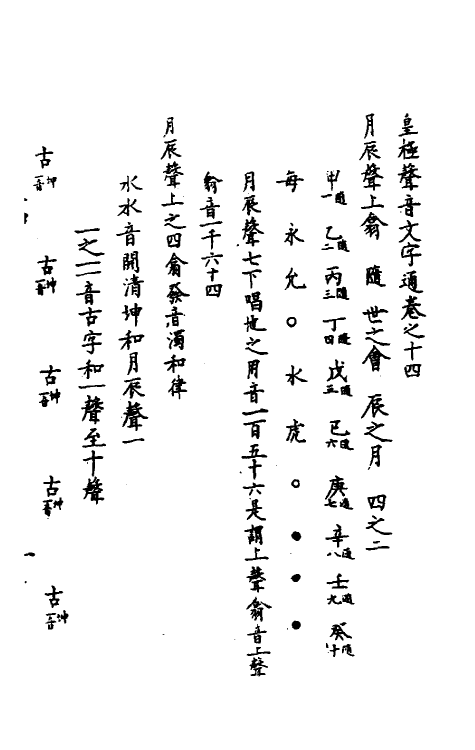 皇極聲音文字通卷之十四
月辰聲上翕 隨 世之會 辰之月 四之二
甲隨一 乙隨二 丙隨三 丁隨四 戊隨五 己隨六 庚隨七 辛隨八 壬隨九 癸隨十
每 永 允 ○ 水 虎 ○ ● ● ●
月辰聲七下唱地之用音一百五十六是謂上聲翕音上聲
翕音一千六十四
月辰聲上之四翕發音濁和律
水水音開清坤和月辰聲一
一之一音古字和一聲至十聲
古坤音 古坤音 古坤音 古坤音 古坤音